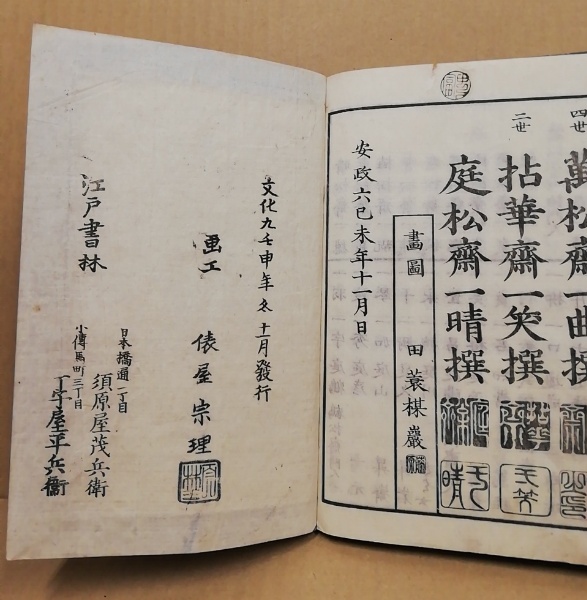 四世
萬松齋一曲撰
二世
拈華齋一笑撰
庭松齋一晴撰
安政六己未年十一月日
畫圖
田蓑楳巖
文化九壬申年冬十一月發行
画工
俵屋宗理
江戸書林
日本橋通一丁目
須原屋茂兵衛
小傳馬町三丁目
丁字屋平兵衛